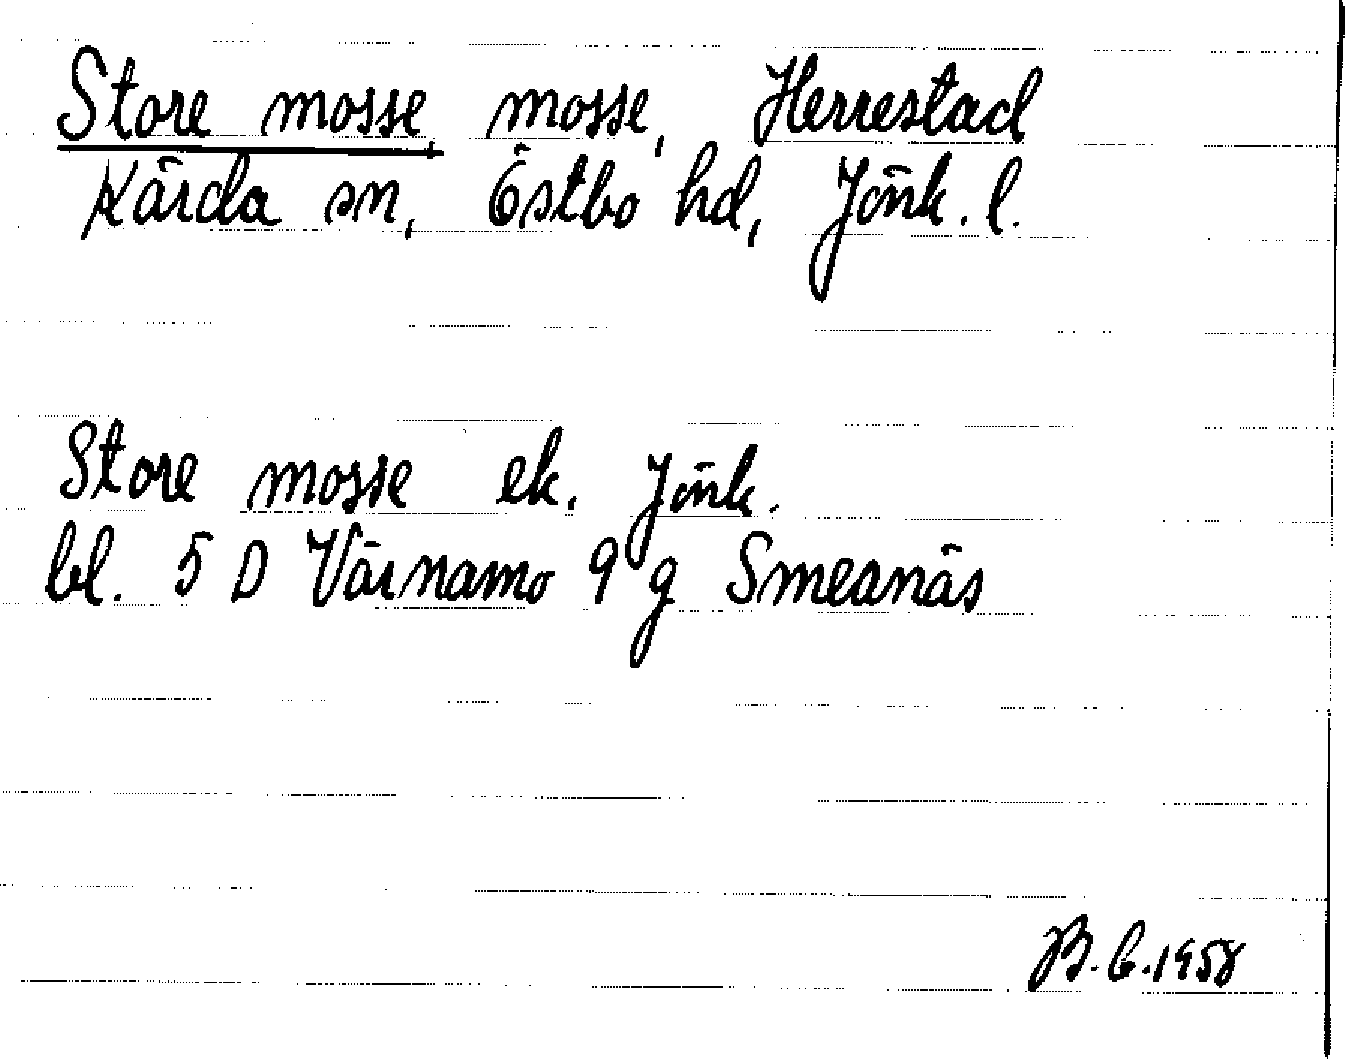 Store mosse, mosse, Herrestad
Kärda sn, Östbo hd, Jönk. l.
Store mosse ek. Jönk.
bl. 5 D Värnamo 9 g Smeanäs
B. G. 1958